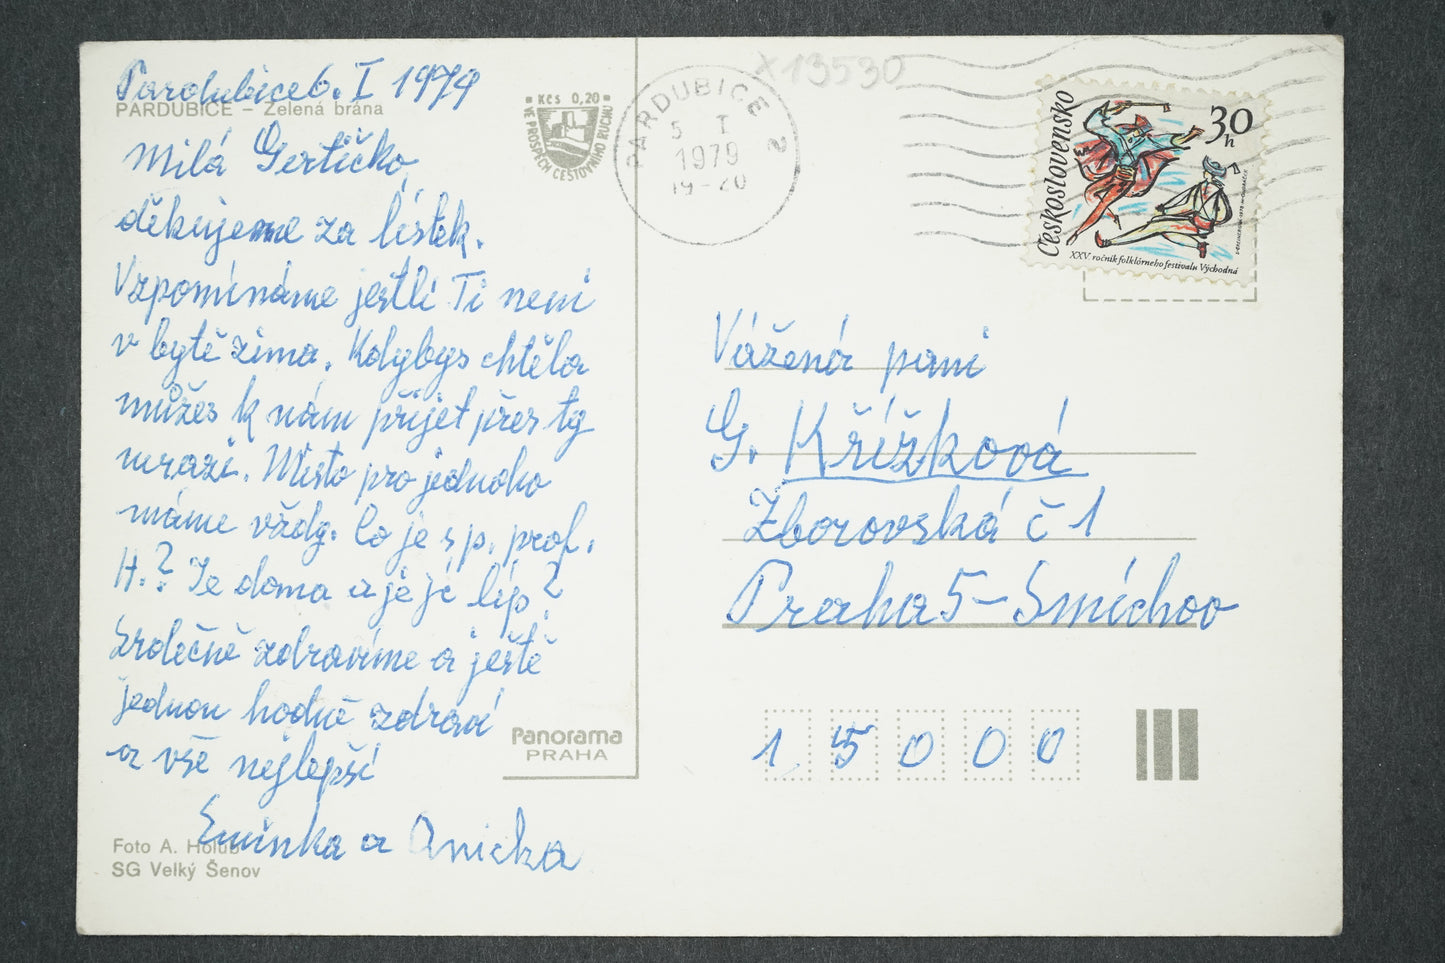 Pardubice 6. I 1979
PARDUBICE – Zelená brána
Milá Gertičko
děkujeme za lístek.
Vzpomínáme jestli Ti neni
v bytě zima. Kdybys chtěla
můžes k nám přijet přes ty
mrazi. Místo pro jednoho
máme vždy. Co je s p. prof.
H.? Je doma a je jí líp?
Srdečně zdravíme a ještě
jednou hodně zdraví
a vše nejlepší
Eminka a Anička
Foto A. Holub
SG Velký Šenov
Panorama
PRAHA
Kčs 0,20
VE PROSPĚCH CESTOVNÍHO RUCHU
PARDUBICE 2
5 I
1979
19-20
x 13530
Československo
30h
XXV. ročník folklórneho festivalu Východná
Vážená paní
G. Křížková
Zborovská č 1
Praha 5 – Smíchov
1 5 0 0 0